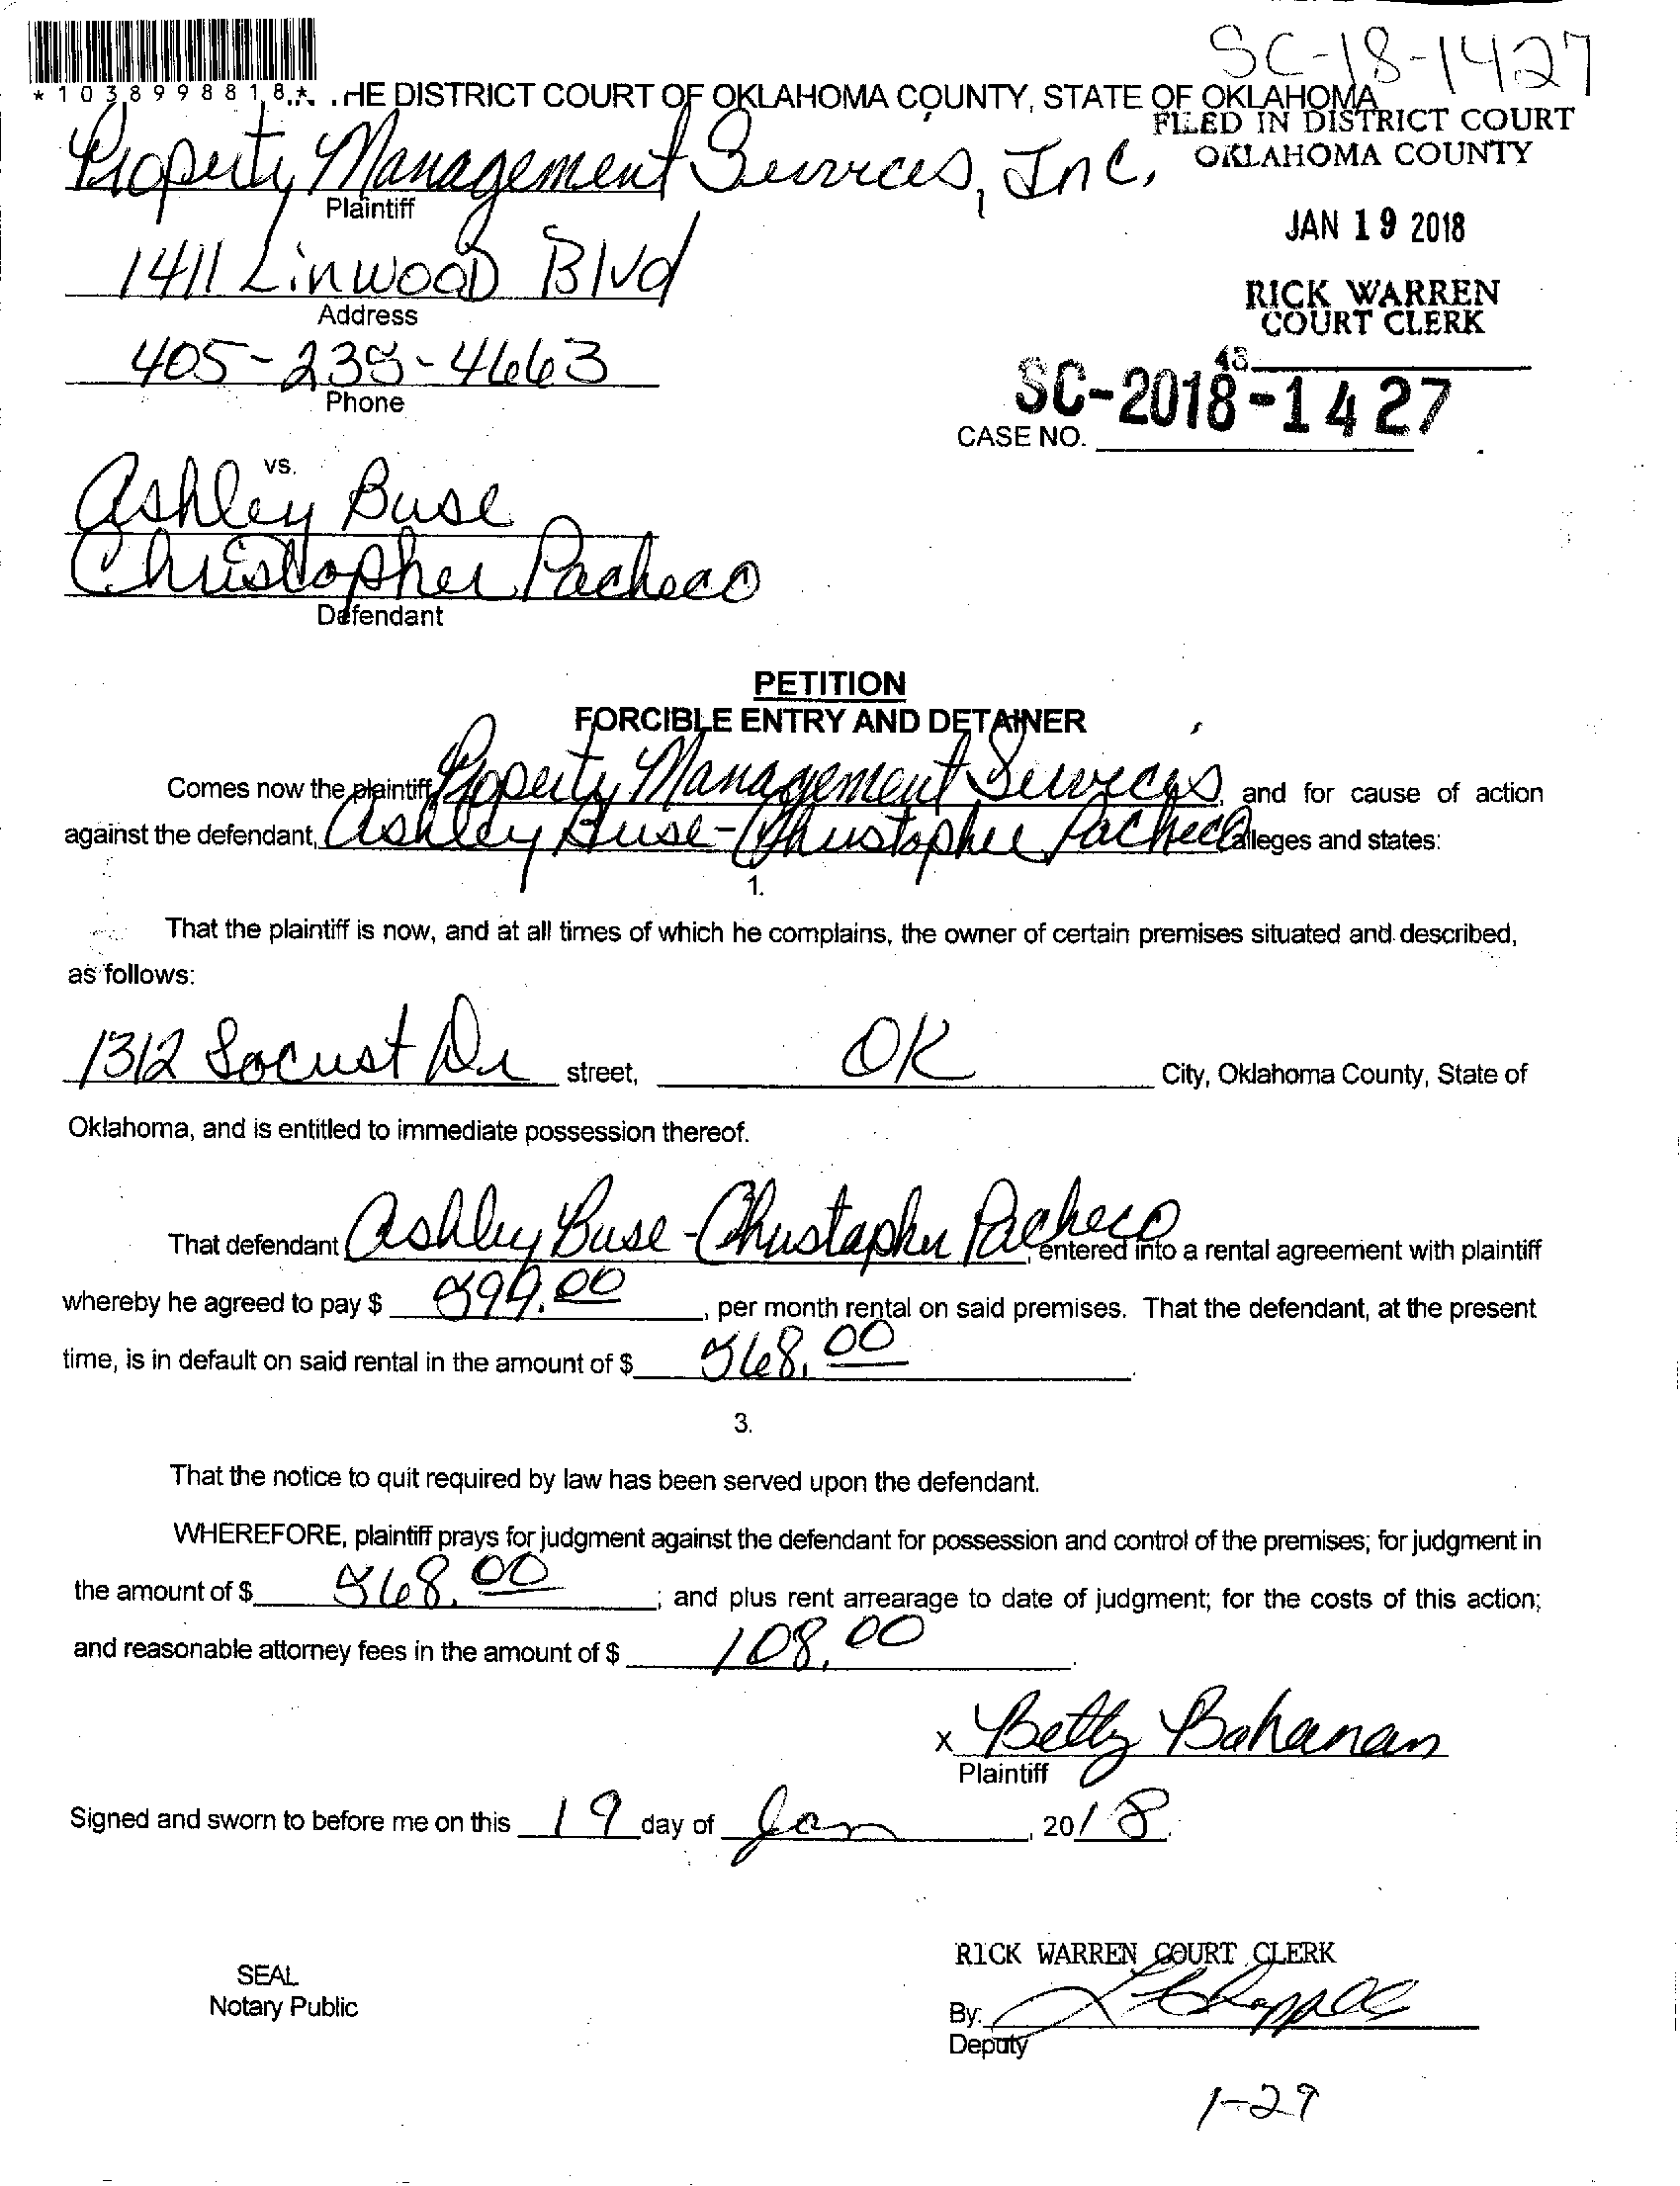 SC-18-1427
*1038998818* .HE DISTRICT COURT OF OKLAHOMA COUNTY, STATE OF OKLAHOMA
FILED IN DISTRICT COURT
OKLAHOMA COUNTY
Property Management Services, Inc,
Plaintiff
JAN 19 2018
1411 Linwood Blvd
Address
RICK WARREN
COURT CLERK
405-235-4663
Phone
48
SC-2018-1427
CASE NO.
vs.
Ashley Buse
Christopher Pacheco
Defendant
PETITION
FORCIBLE ENTRY AND DETAINER
Comes now the plaintiff Property Management Services, and for cause of action
against the defendant, Ashley Buse-Christopher Pacheco alleges and states:
1.
That the plaintiff is now, and at all times of which he complains, the owner of certain premises situated and described,
as follows:
1312 Locust Dr street, OK City, Oklahoma County, State of
Oklahoma, and is entitled to immediate possession thereof.
That defendant Ashley Buse-Christopher Pacheco, entered into a rental agreement with plaintiff
whereby he agreed to pay $ 899.00, per month rental on said premises. That the defendant, at the present
time, is in default on said rental in the amount of $ 568.00.
3.
That the notice to quit required by law has been served upon the defendant.
WHEREFORE, plaintiff prays for judgment against the defendant for possession and control of the premises; for judgment in
the amount of $ 568.00; and plus rent arrearage to date of judgment; for the costs of this action;
and reasonable attorney fees in the amount of $ 108.00.
x Betty Bohanan
Plaintiff
Signed and sworn to before me on this 19 day of Jan, 2018.
RICK WARREN COURT CLERK
SEAL
Notary Public
By:
Deputy
1-29